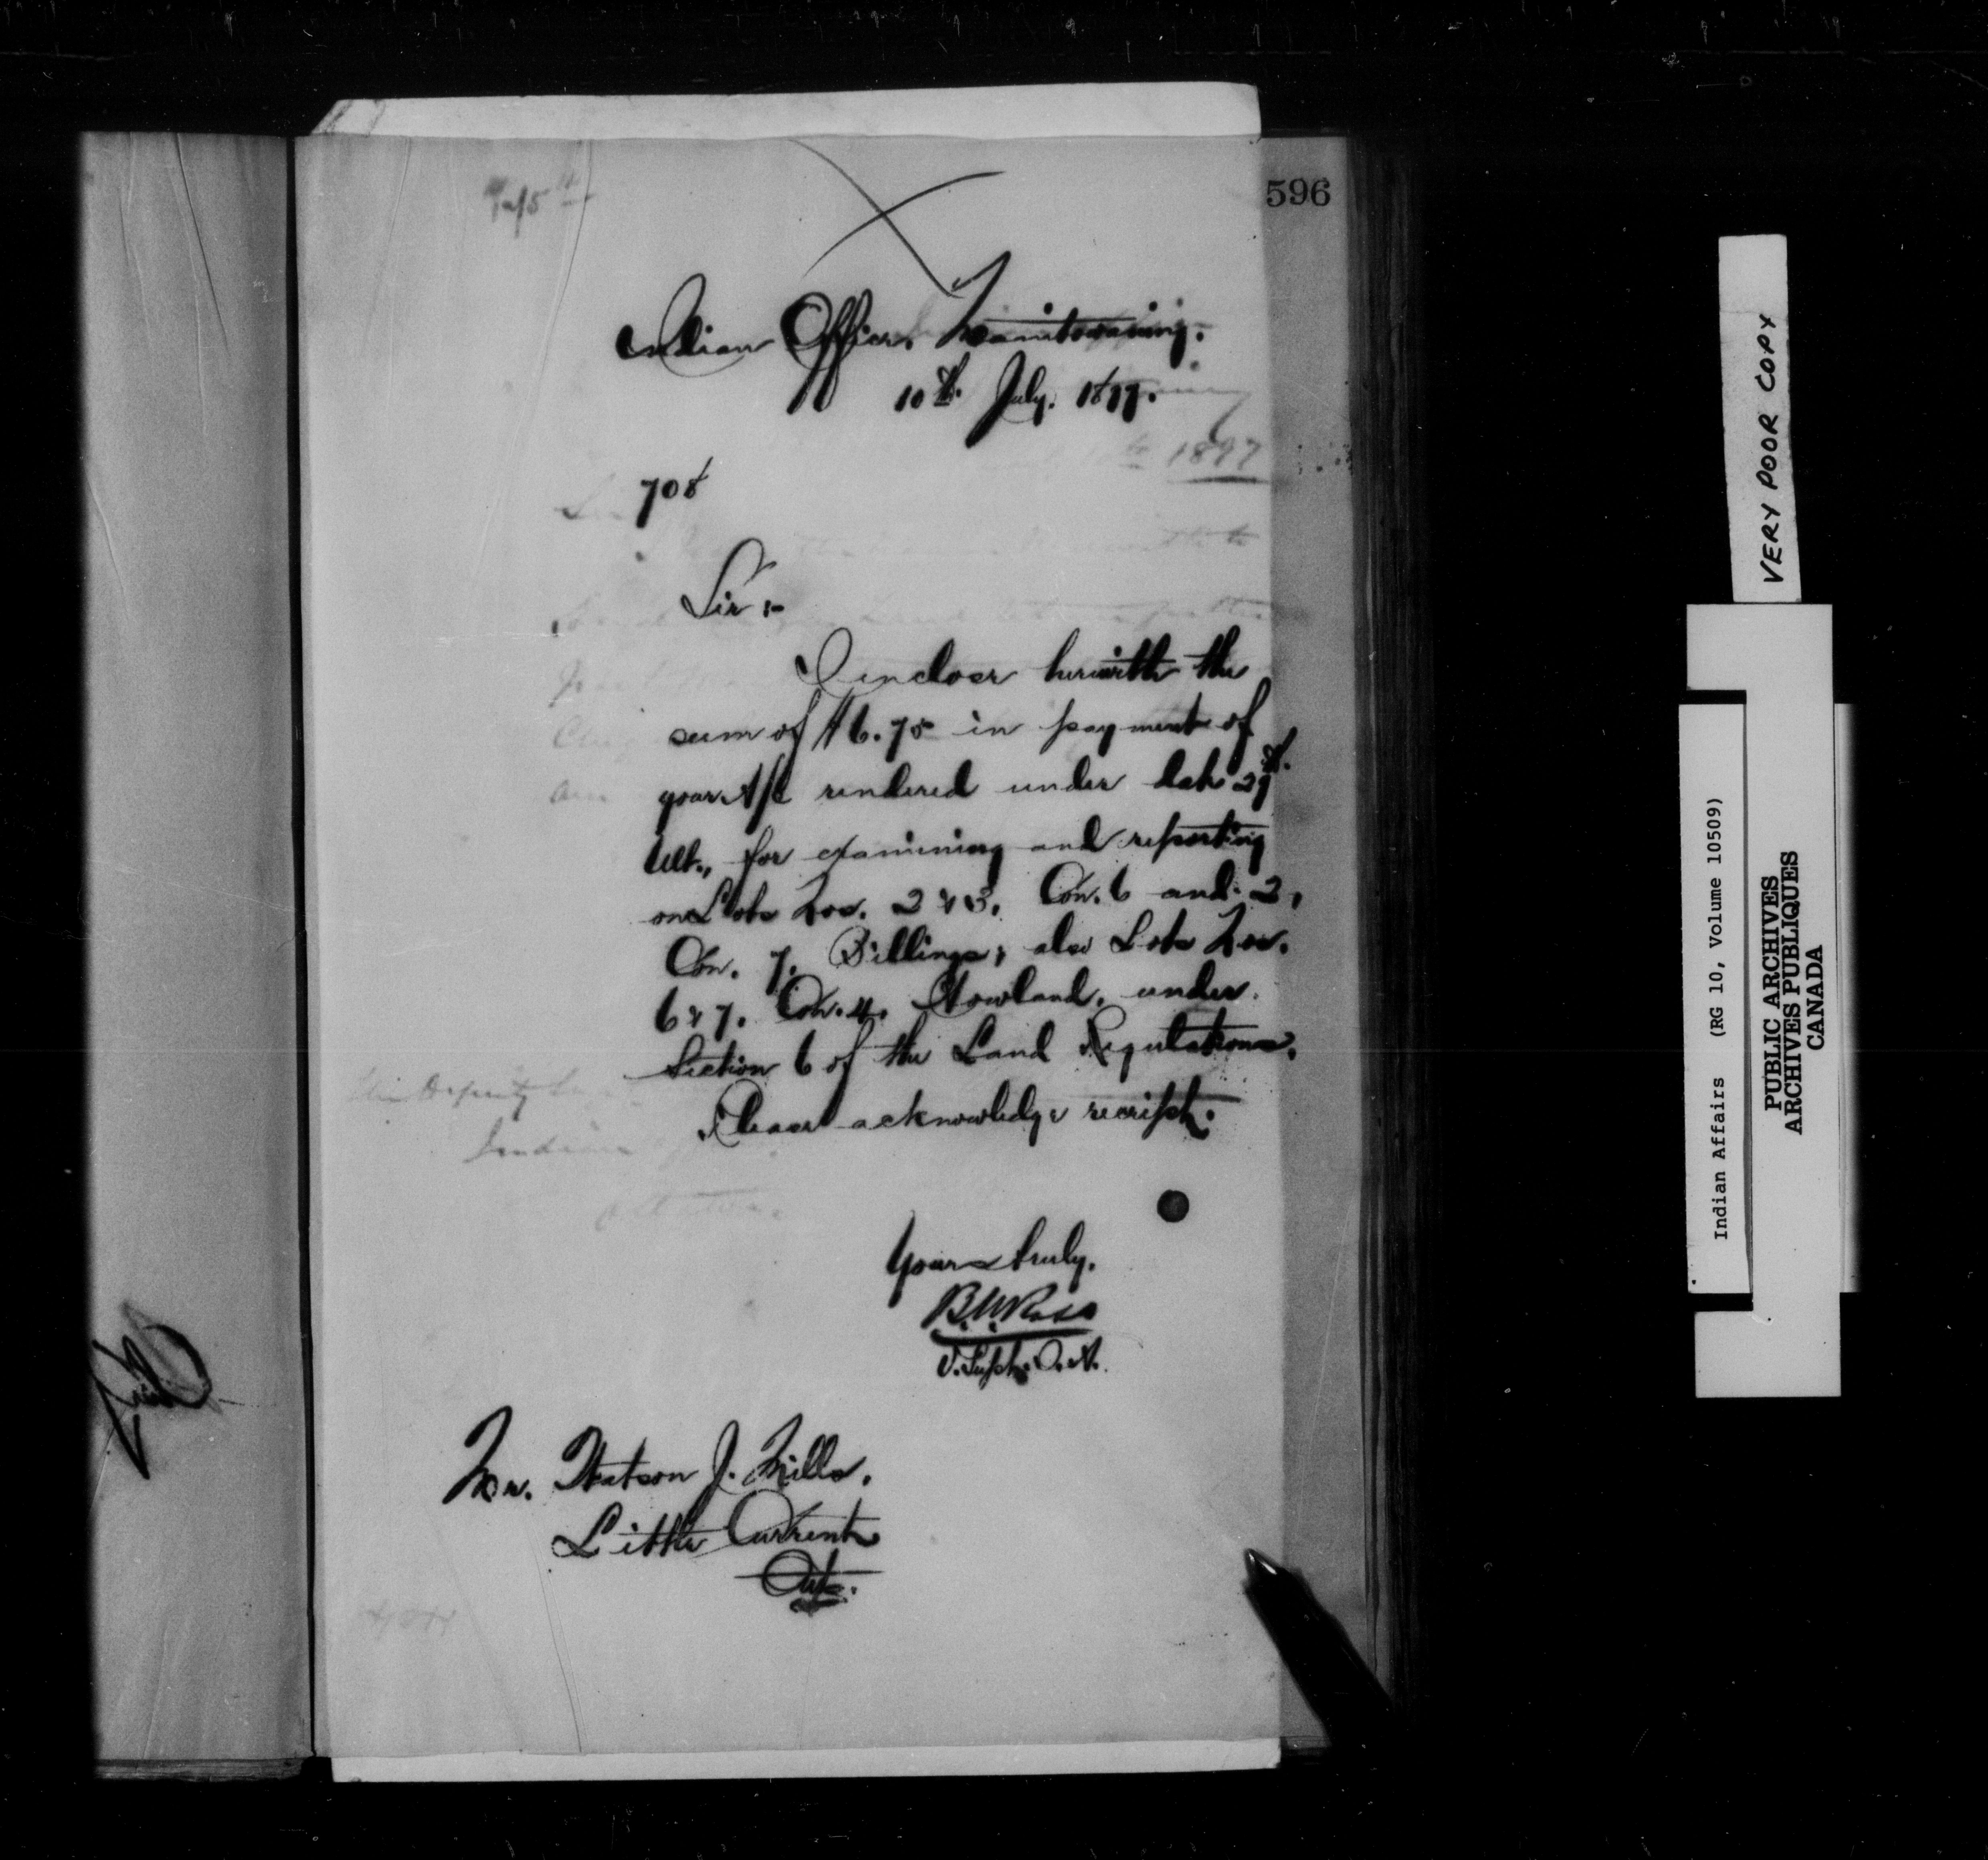 596
Indian Office, Manitowaning.
10th July. 1897.
1897
708
Sir :-
I enclose herewith the
sum of $6.75 in payment of
your A/c rendered under date 29th.
Ult., for examining and reporting
on Lots Nos. 2 & 3, Con. 6 and 2,
Con. 7, Billings, also Lots Nos.
6 & 7. Con. 4. Howland, under
Section 6 of the Land Regulations.
Please acknowledge receipt.
Yours truly,
B. W. Ross
V. Supt. I. A.
Mr. Watson J. Mills.
Little Current
Ont.
VERY POOR COPY
Indian Affairs (RG 10, Volume 10509)
PUBLIC ARCHIVES
ARCHIVES PUBLIQUES
CANADA